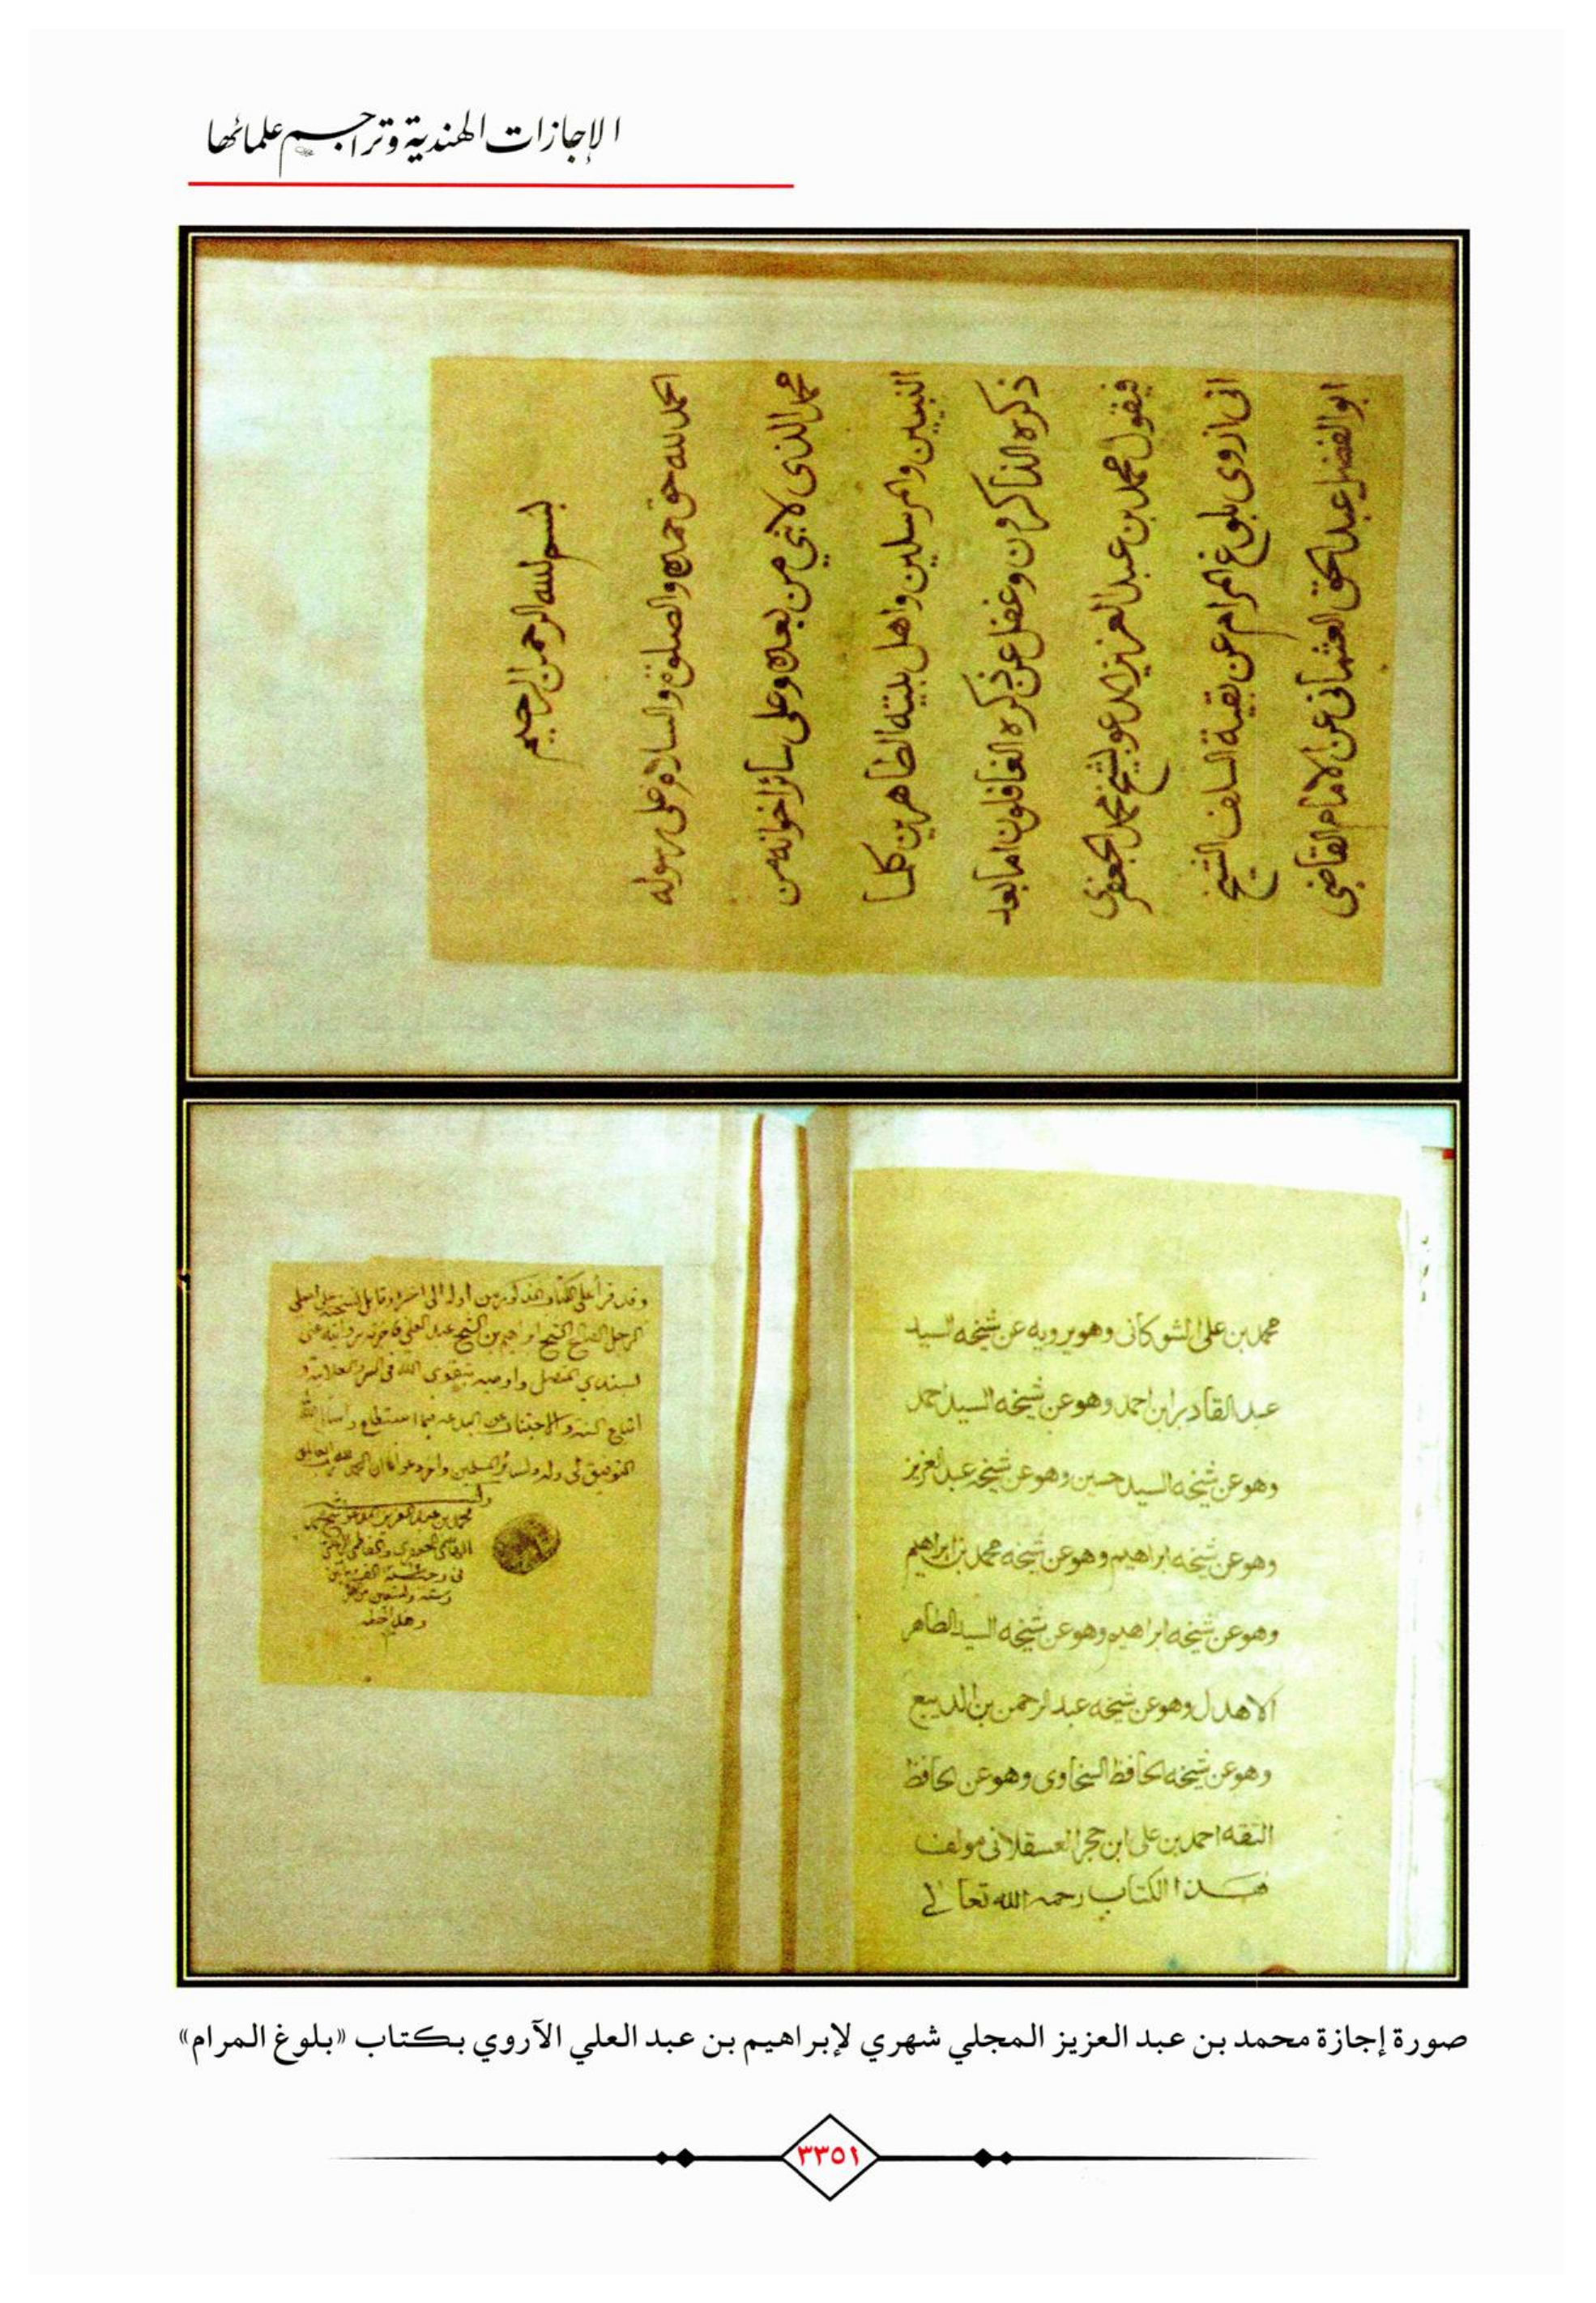 الإجازات الهندية وتراجم علمائها
بسم الله الرحمن الرحيم
الحمد لله حق حمده والصلوة والسلام على رسوله
محمد الذى لا نبي من بعده وعلى سائر اخوانه من
النبيين والمرسلين واهل بيته الطاهرين كلما
ذكره الذاكرون وغفل عن ذكره الغافلون اما بعد
فيقول محمد بن عبد العزيز المدعو بشيخ محمد الجعفرى
انى اروى بلوغ المرام عن بقية السلف الشيخ
ابو الفضل عبد الحق العثمانى عن الامام القاضى
محمد بن على الشوكانى وهو يرويه عن شيخه السيد
عبد القادر ابن احمد وهو عن شيخه السيد احمد
وهو عن شيخه السيد حسين وهو عن شيخه عبد العزيز
وهو عن شيخه ابراهيم وهو عن شيخه محمد بن ابراهيم
وهو عن شيخه ابراهيم وهو عن شيخه السيد الطاهر
الاهدل وهو عن شيخه عبد الرحمن بن الديبع
وهو عن شيخه الحافظ السخاوى وهو عن الحافظ
الثقه احمد بن على ابن حجر العسقلانى مولف
هذا الكتاب رحمه الله تعالى
وقد قرأ على الكتاب المذكور من اوله الى اخره وقابل نسخته على اصلى
الرجل الصالح الشيخ ابراهيم بن الشيخ عبد العلى فاجزته بروايته عنى
بسندي المتصل واوصيه بتقوى الله فى السر والعلانية و
اتباع السنة والاجتناب عن البدعة فيما استطاع واسأل الله
التوفيق لى وله ولسائر المسلمين واخر دعوانا ان الحمد لله رب العالمين
محمد بن عبد العزيز المدعو بشيخ محمد
صورة إجازة محمد بن عبد العزيز المجلي شهري لإبراهيم بن عبد العلي الآروي بكتاب «بلوغ المرام»
٣٣٥١